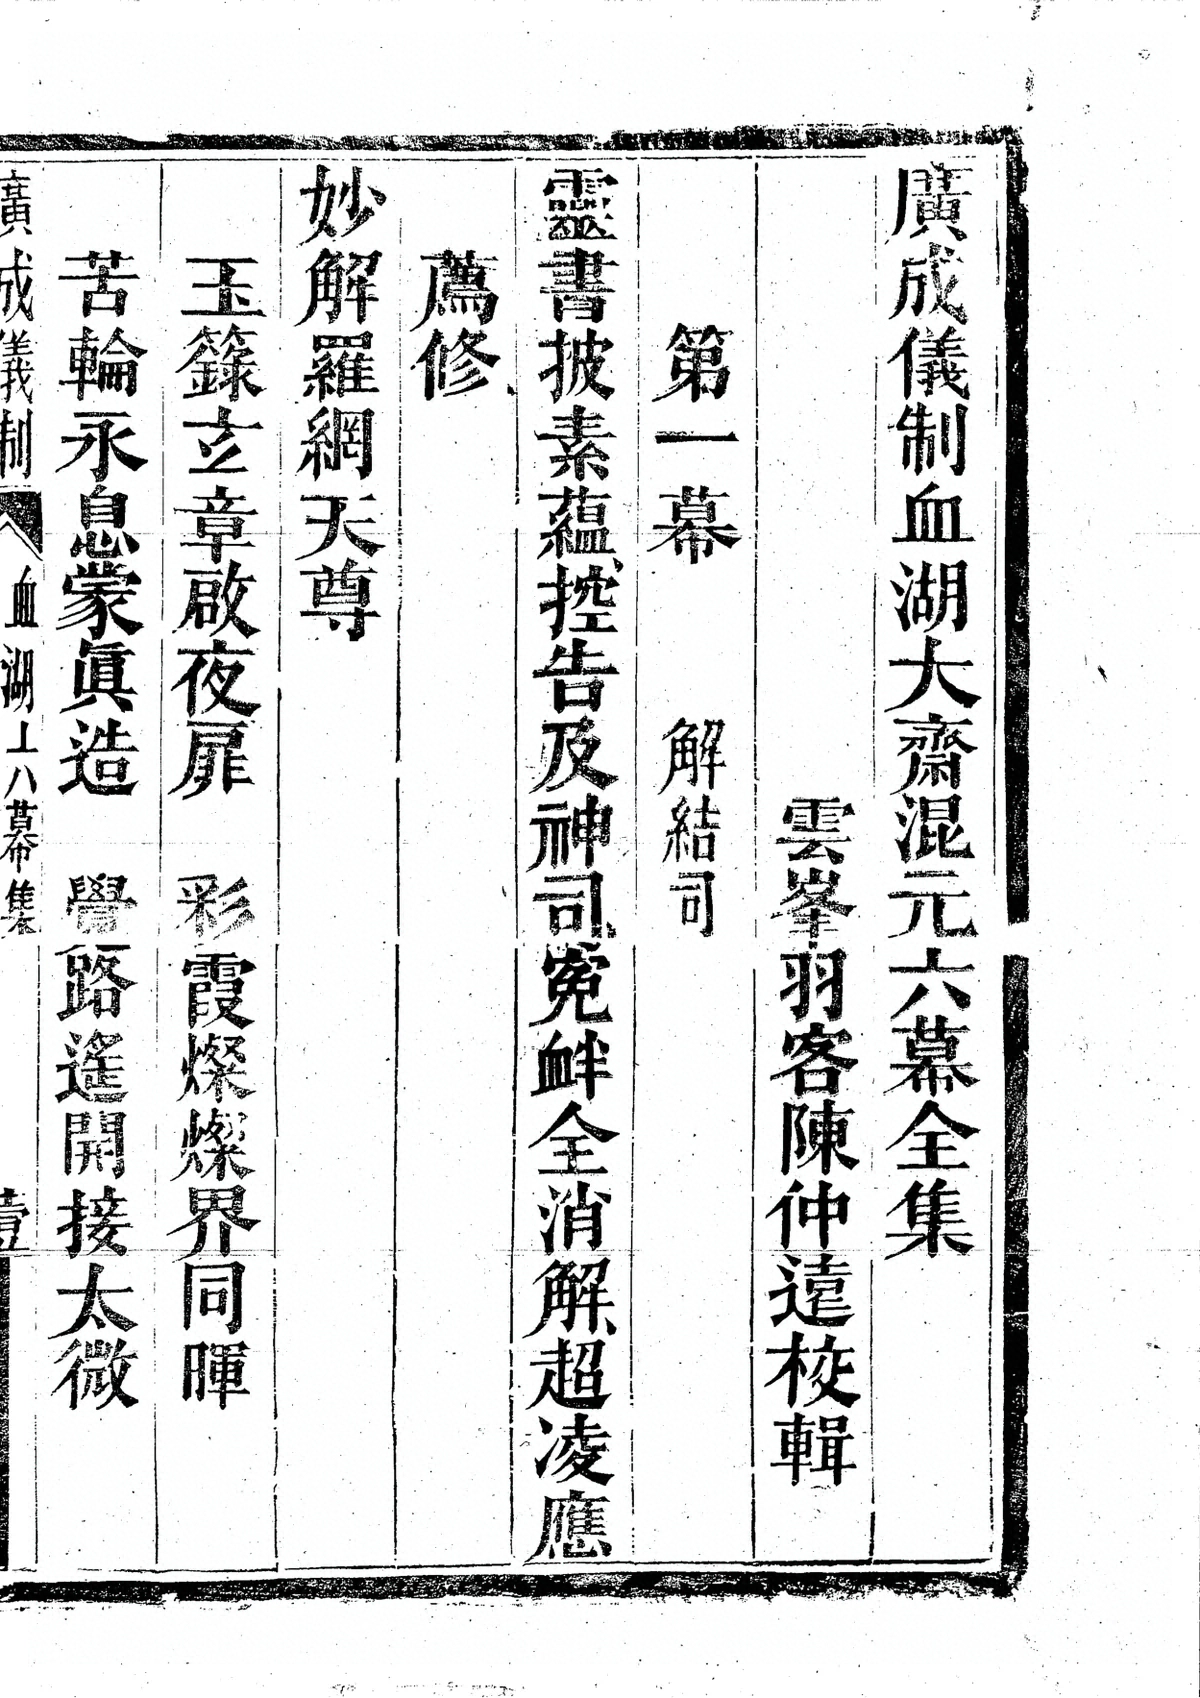 廣成儀制血湖大齋混元六幕全集
雲峯羽客陳仲遠校輯
第一幕 解結司
靈書披素蘊控告及神司冤衅全消解超凌應
薦修
妙解羅網天尊
玉籙玄章啟夜扉 彩霞燦燦界同暉
苦輪永息蒙眞造 覺路遙開接太微
廣成儀制 血湖上八幕集 壹